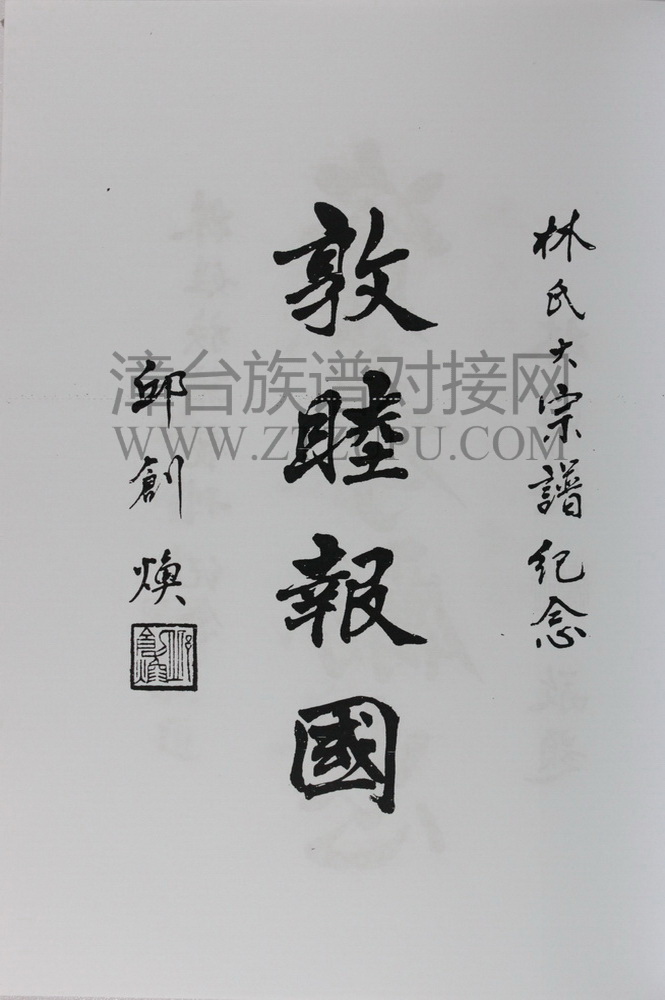 林氏大宗譜紀念
敦睦報國
邱創煥
漳台族谱对接网
WWW.ZTZUPU.COM